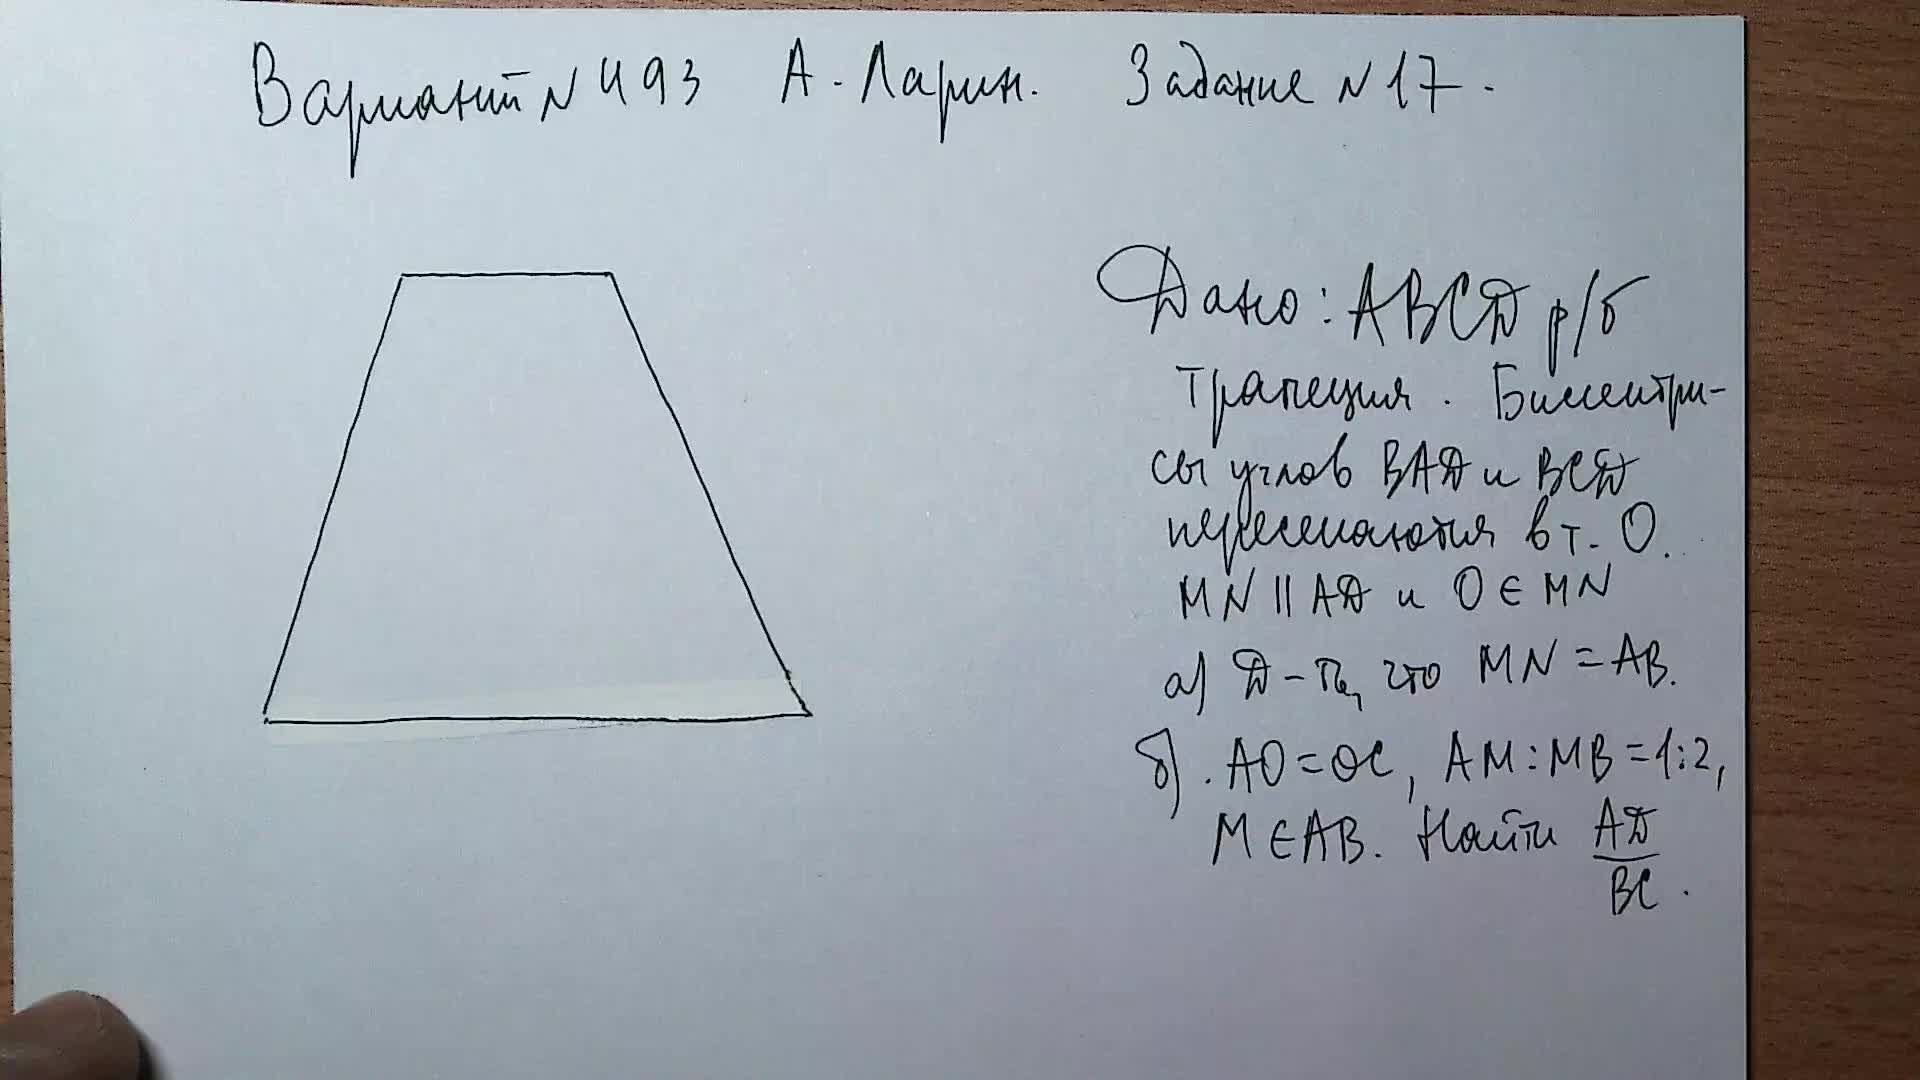 Вариант N 493 А. Ларин. Задание N 17.
Дано: ABCD р/б
трапеция. Биссектри-
сы углов BAD и BCD
пересекаются в т. O.
MN || AD и O ∈ MN
а) Д-ть, что MN = AB.
б). AO = OC, AM : MB = 1:2,
M ∈ AB. Найти AD
BC.